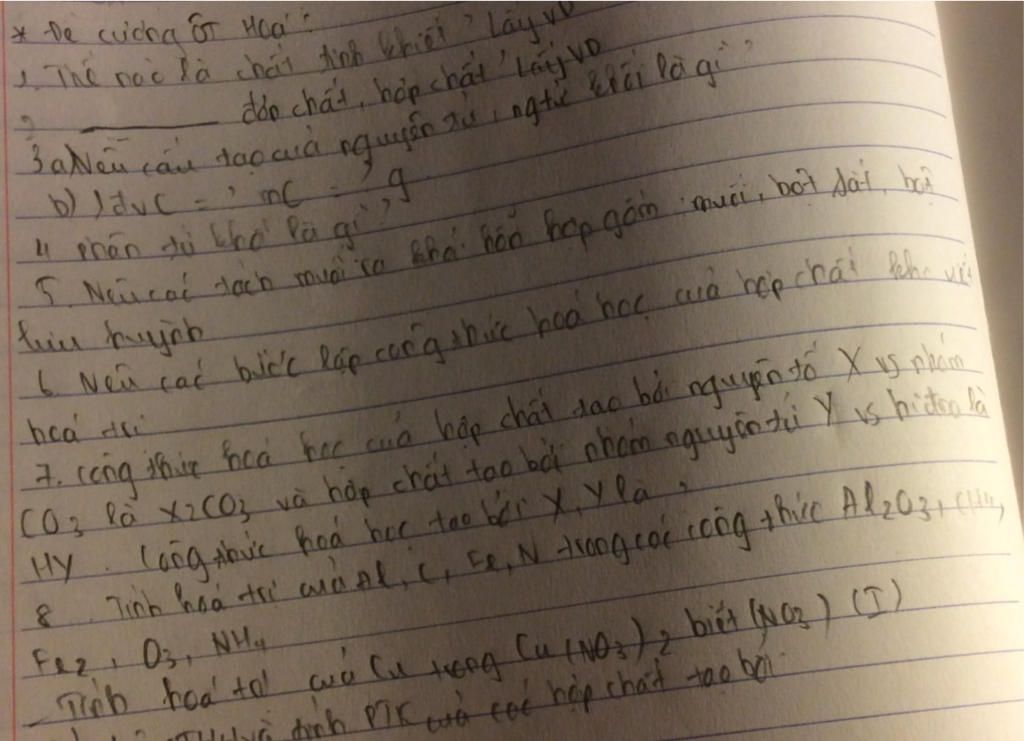 * Đề cương ÔT Hoá:
1, Thế nào là chất tinh khiết? Lấy VD
2 ______ đơn chất, hợp chất? Lấy VD
3 a) Nêu cấu tạo của nguyên tử, ngtử khối là gì?
b) 1đvC = ? mC = ? g
4 phân tử khối là gì?
5. Nêu các tách muối ra khỏi hỗn hợp gồm: muối, bột sắt, bột
lưu huỳnh
6. Nêu các bước lập công thức hoá học của hợp chất khi
hoá trị
7. Công thức hoá học của hợp chất tạo bởi nguyên tố X vs nhóm
CO3 là X2CO3 và hợp chất tạo bởi nhóm nguyên tử Y vs hiđro là
HY. Công thức hoá học tạo bởi X, Y là?
8 Tính hoá trị của Al, C, Fe, N trong các công thức Al2O3, CH4,
Fe2, O3, NH4
_ Tính hoá trị của Cu trong Cu(NO3)2 biết (NO3) (I)
và tính PTK của các hợp chất tạo bởi: